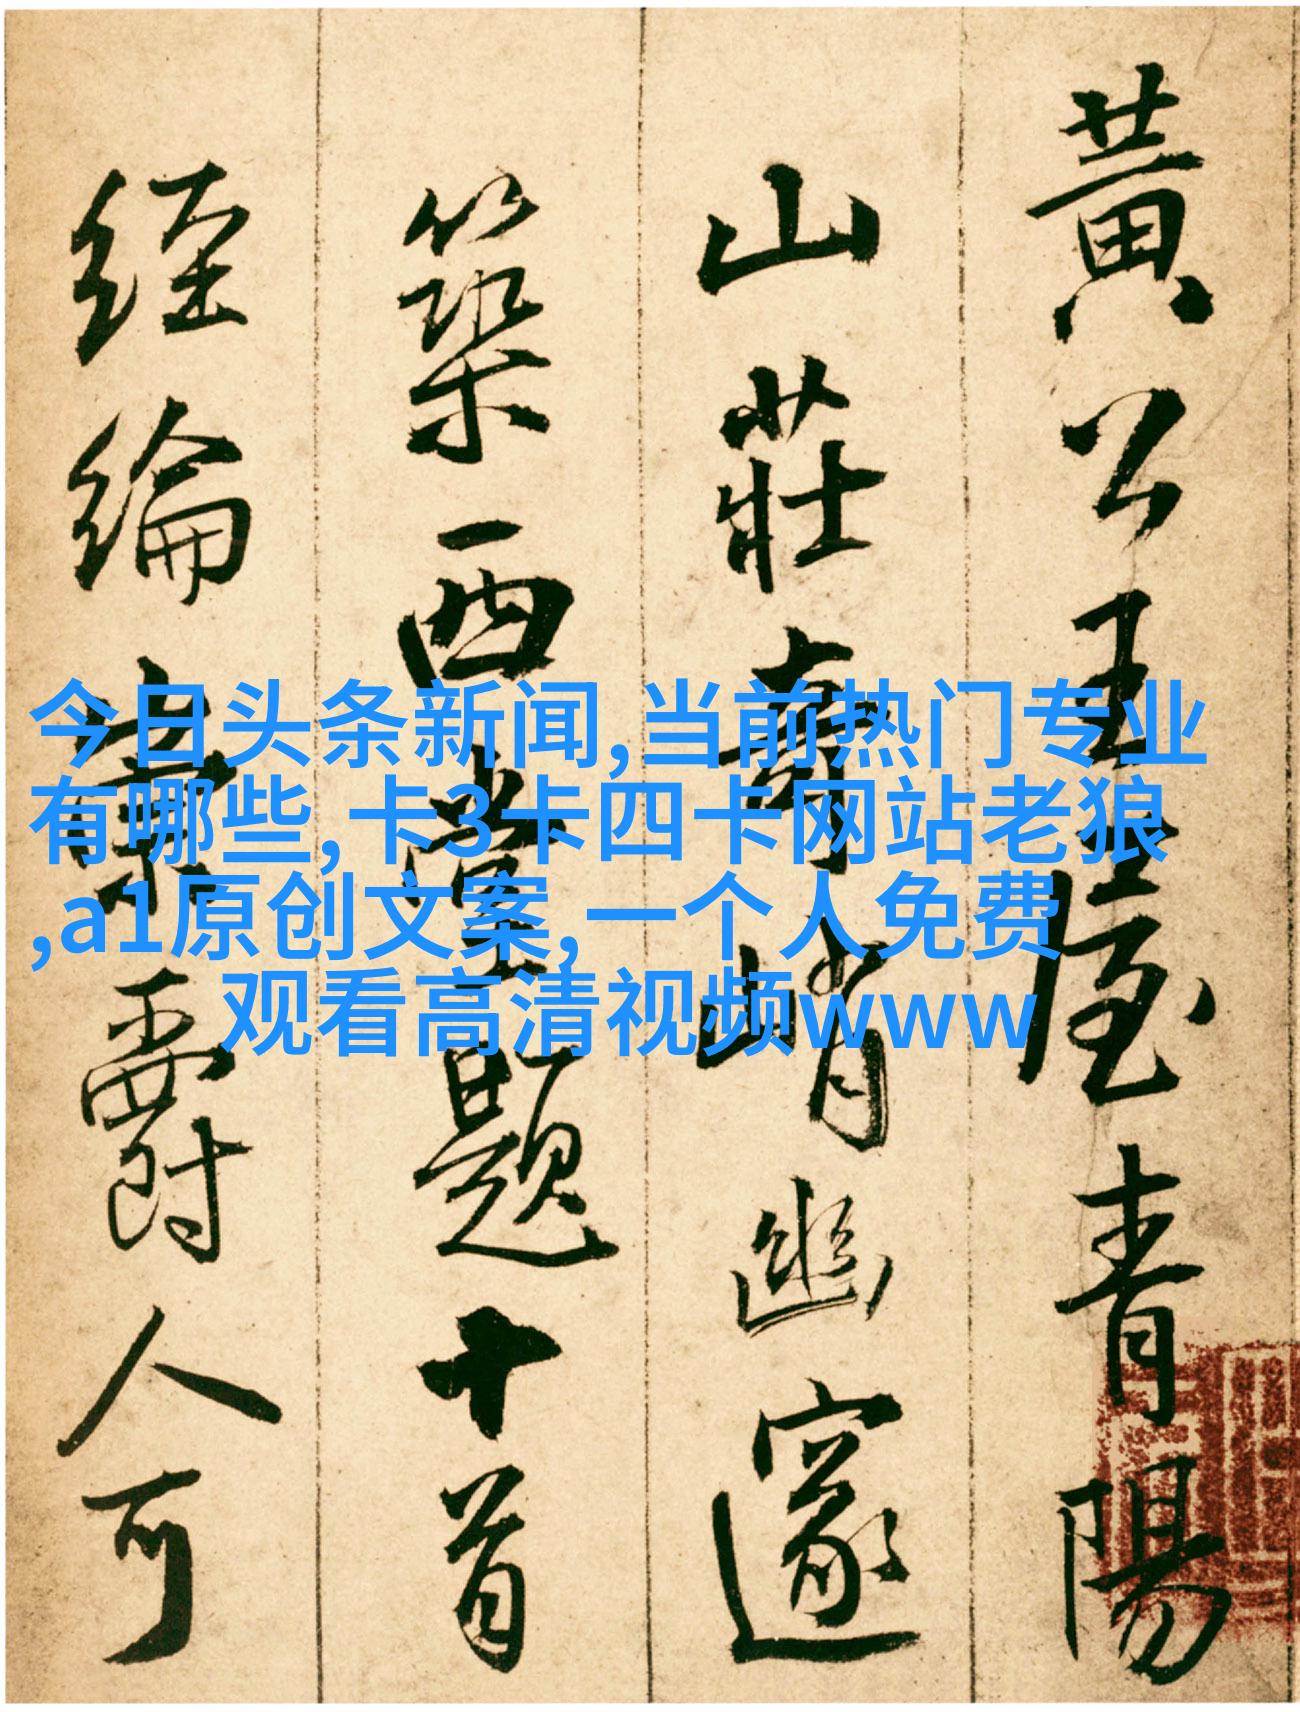 黃公玉屋青陽
山莊奇峭幽邃
築西堂題十首
經綸素爵人可
今日头条新闻,当前热门专业
有哪些,卡3卡四卡网站老狼
,a1原创文案,一个人免费
观看高清视频www